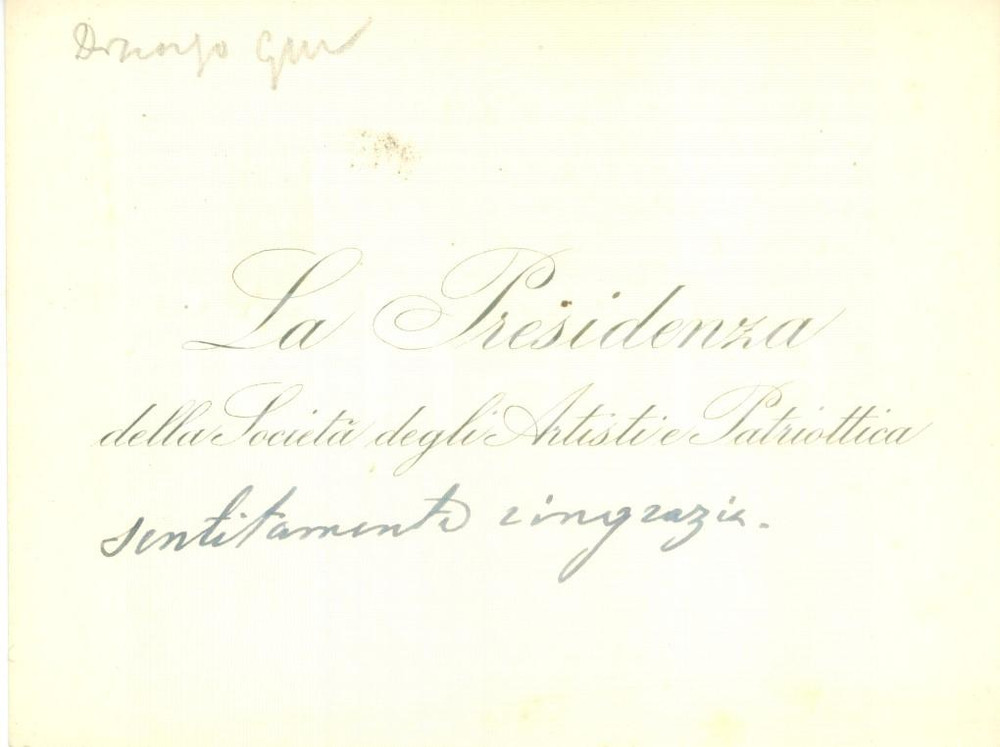 La Presidenza
della Società degli Artisti e Patriottica
sentitamente ringrazia.